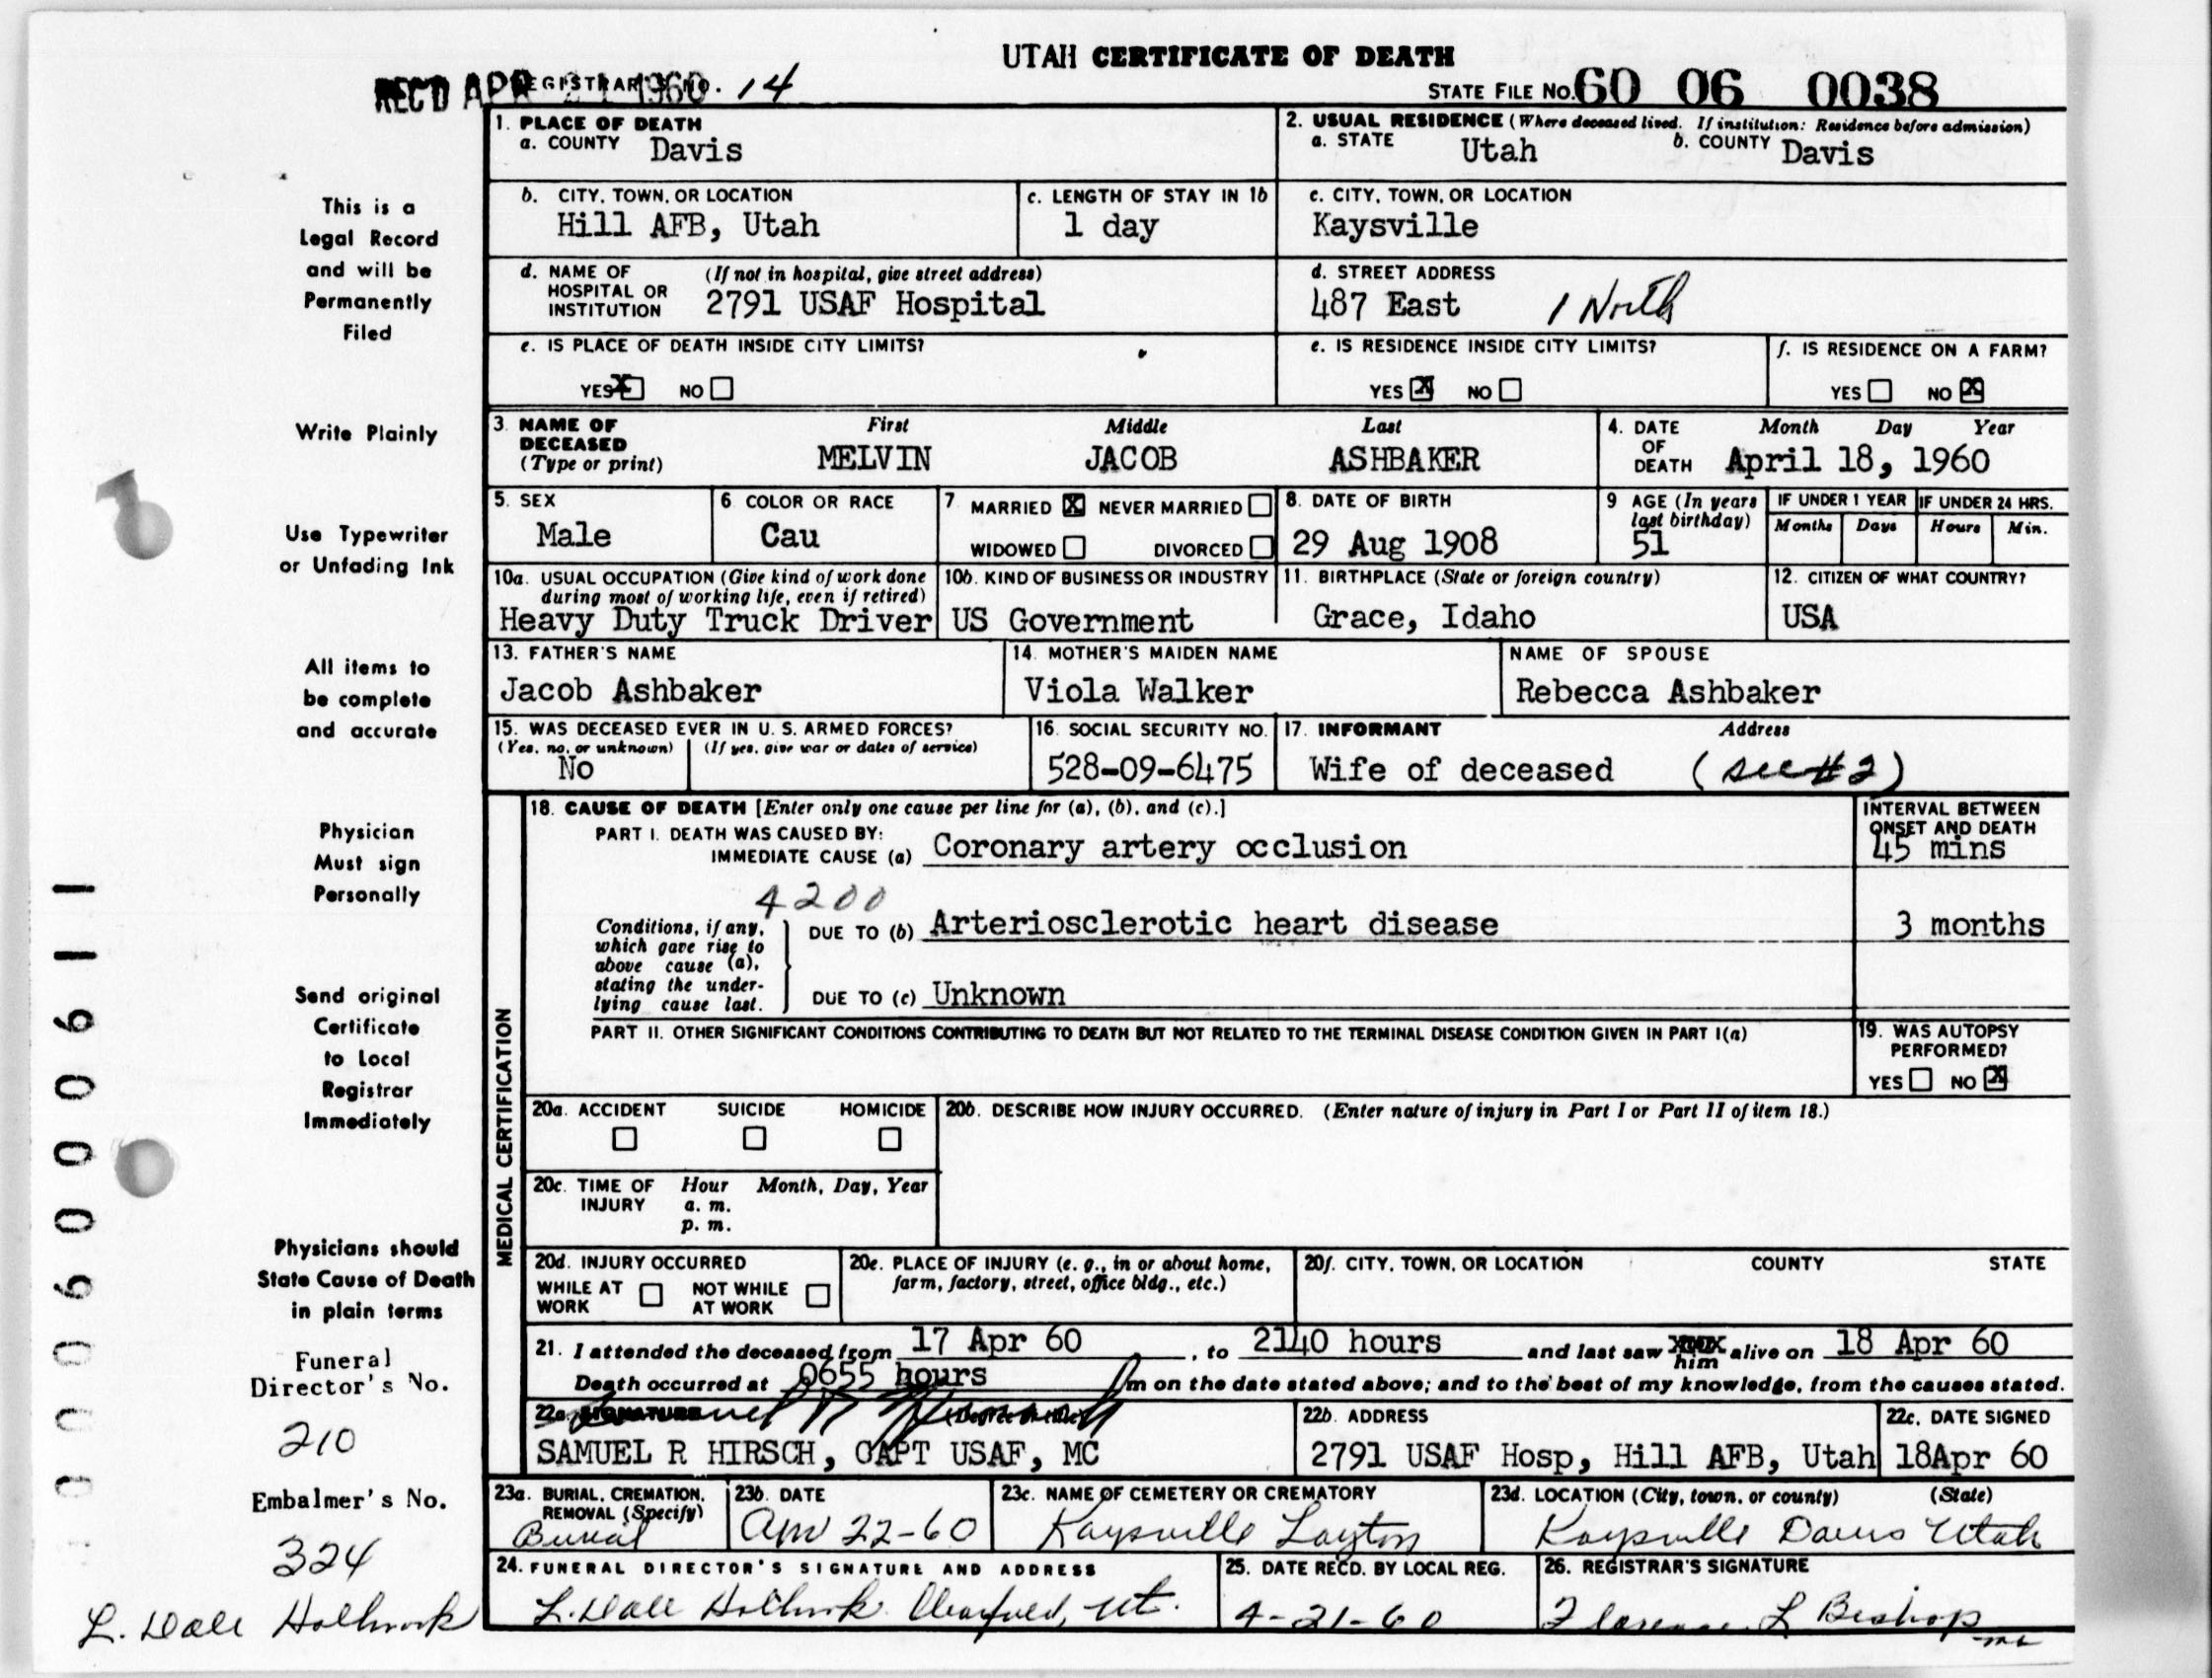 UTAH CERTIFICATE OF DEATH
REC'D APR 21 1960 REGISTRAR'S NO. 14
STATE FILE NO. 60 06 0038
1. PLACE OF DEATH
a. COUNTY Davis
2. USUAL RESIDENCE (Where deceased lived. If institution: Residence before admission)
a. STATE Utah b. COUNTY Davis
b. CITY, TOWN, OR LOCATION
Hill AFB, Utah
c. LENGTH OF STAY IN 1b
1 day
c. CITY, TOWN, OR LOCATION
Kaysville
d. NAME OF HOSPITAL OR INSTITUTION (If not in hospital, give street address)
2791 USAF Hospital
d. STREET ADDRESS
487 East 1 North
e. IS PLACE OF DEATH INSIDE CITY LIMITS?
YES X NO
e. IS RESIDENCE INSIDE CITY LIMITS?
YES X NO
f. IS RESIDENCE ON A FARM?
YES NO X
3. NAME OF DECEASED (Type or print)
First Middle Last
MELVIN JACOB ASHBAKER
4. DATE OF DEATH Month Day Year
April 18, 1960
5. SEX
Male
6 COLOR OR RACE
Cau
7 MARRIED X NEVER MARRIED
WIDOWED DIVORCED
8. DATE OF BIRTH
29 Aug 1908
9 AGE (In years last birthday)
51
IF UNDER 1 YEAR IF UNDER 24 HRS.
Months Days Hours Min.
10a. USUAL OCCUPATION (Give kind of work done during most of working life, even if retired)
Heavy Duty Truck Driver
10b. KIND OF BUSINESS OR INDUSTRY
US Government
11. BIRTHPLACE (State or foreign country)
Grace, Idaho
12. CITIZEN OF WHAT COUNTRY?
USA
13. FATHER'S NAME
Jacob Ashbaker
14. MOTHER'S MAIDEN NAME
Viola Walker
NAME OF SPOUSE
Rebecca Ashbaker
15. WAS DECEASED EVER IN U. S. ARMED FORCES?
(Yes, no, or unknown) (If yes, give war or dates of service)
No
16. SOCIAL SECURITY NO.
528-09-6475
17. INFORMANT Address
Wife of deceased (see #2)
MEDICAL CERTIFICATION
18. CAUSE OF DEATH [Enter only one cause per line for (a), (b), and (c).]
INTERVAL BETWEEN ONSET AND DEATH
PART I. DEATH WAS CAUSED BY:
IMMEDIATE CAUSE (a) Coronary artery occlusion 45 mins
4200
Conditions, if any, which gave rise to above cause (a), stating the underlying cause last.
DUE TO (b) Arteriosclerotic heart disease 3 months
DUE TO (c) Unknown
PART II. OTHER SIGNIFICANT CONDITIONS CONTRIBUTING TO DEATH BUT NOT RELATED TO THE TERMINAL DISEASE CONDITION GIVEN IN PART I(a)
19. WAS AUTOPSY PERFORMED?
YES NO X
20a. ACCIDENT SUICIDE HOMICIDE
20b. DESCRIBE HOW INJURY OCCURRED. (Enter nature of injury in Part I or Part II of item 18.)
20c. TIME OF INJURY Hour Month, Day, Year
a. m.
p. m.
20d. INJURY OCCURRED
WHILE AT WORK NOT WHILE AT WORK
20e. PLACE OF INJURY (e. g., in or about home, farm, factory, street, office bldg., etc.)
20f. CITY, TOWN, OR LOCATION COUNTY STATE
21. I attended the deceased from 17 Apr 60, to 2140 hours and last saw him alive on 18 Apr 60
Death occurred at 0655 hours m on the date stated above; and to the best of my knowledge, from the causes stated.
22a. SIGNATURE (Degree or title)
SAMUEL R HIRSCH, CAPT USAF, MC
22b. ADDRESS
2791 USAF Hosp, Hill AFB, Utah
22c. DATE SIGNED
18Apr 60
23a. BURIAL, CREMATION, REMOVAL (Specify)
Burial
23b. DATE
Apr 22-60
23c. NAME OF CEMETERY OR CREMATORY
Kaysville Layton
23d. LOCATION (City, town, or county) (State)
Kaysville Davis Utah
24. FUNERAL DIRECTOR'S SIGNATURE AND ADDRESS
L. Dale Holbrook Clearfield, Ut.
25. DATE REC'D. BY LOCAL REG.
4-21-60
26. REGISTRAR'S SIGNATURE
Florence L Bishop
This is a
Legal Record
and will be
Permanently
Filed
Write Plainly
Use Typewriter
or Unfading Ink
All items to
be complete
and accurate
Physician
Must sign
Personally
Send original
Certificate
to Local
Registrar
Immediately
Physicians should
State Cause of Death
in plain terms
Funeral
Director's No.
210
Embalmer's No.
324
L. Dale Holbrook